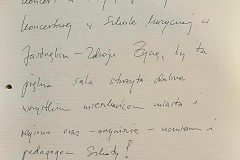 koncert w
koncertowej w Szkole Muzycznej w
Jastrzębiu - Zdroju. Życzę, by ta
piękna sala służyła dobrze
wszystkim mieszkańcom miasta i
regionu oraz - oczywiście - uczniom i
pedagogom Szkoły!